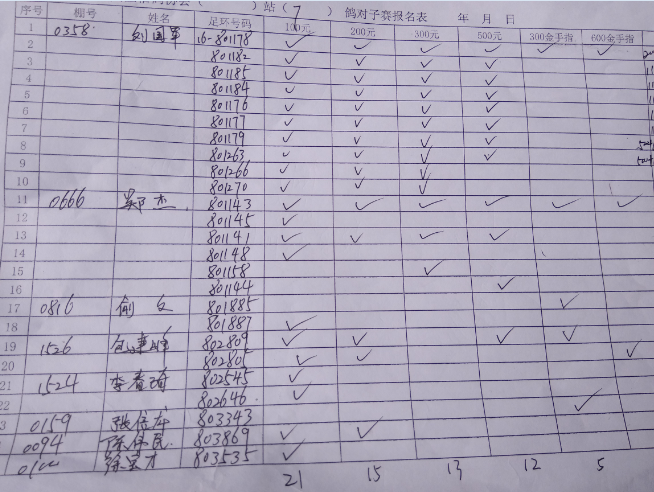 站( 7 ) 鸽对子赛报名表 年 月 日
序号 棚号 姓名 足环号码 100元 200元 300元 500元 300金手指 600金手指
1 0358 刘国军 16-801178 ✓ ✓ ✓ ✓ ✓ ✓
2 801182 ✓ ✓ ✓ ✓
3 801185 ✓ ✓ ✓ ✓
4 801184 ✓ ✓ ✓ ✓
5 801176 ✓ ✓ ✓ ✓
6 801177 ✓ ✓ ✓ ✓
7 801179 ✓ ✓ ✓ ✓
8 801263 ✓ ✓ ✓ ✓
9 801266 ✓ ✓ ✓
10 801270 ✓ ✓ ✓
11 0666 郑杰 801143 ✓ ✓ ✓ ✓ ✓ ✓
12 801145 ✓
13 801141 ✓ ✓ ✓ ✓
14 801148 ✓
15 801158 ✓
16 801144 ✓
17 0816 俞文 801885 ✓
18 801887 ✓
19 1526 802809 ✓ ✓ ✓ ✓
20 80280 ✓ ✓ ✓
21 1524 李春琦 802545 ✓
22 802646 ✓
3 0159 803343 ✓
0094 陈伟民 803869 ✓ ✓
徐宝才 803535 ✓
21 15 13 12 5